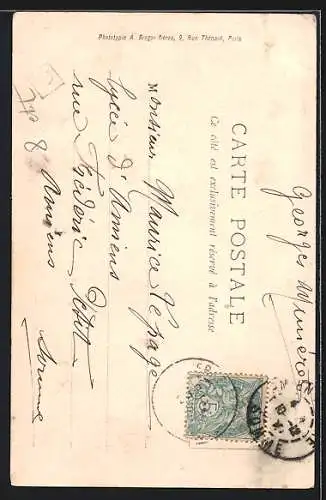 Phototypie A. Breger frères, 9, Rue Thénard, Paris
CARTE POSTALE
Ce côté est exclusivement réservé à l'adresse
Monsieur Maurice Lepage
Lycée d'Amiens
rue Frédéric Petit
Amiens
Somme
Georges